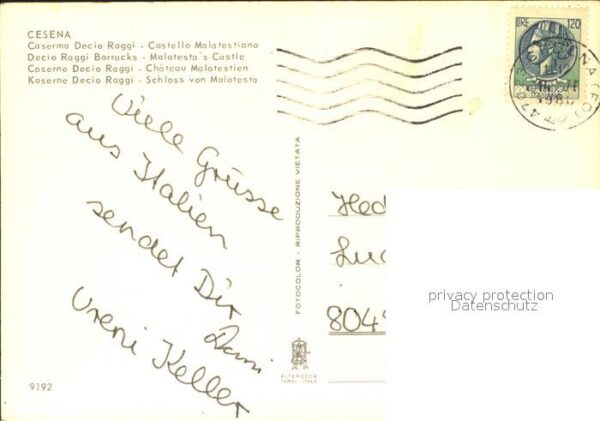 CESENA
Caserma Decio Raggi - Castello Malatestiano
Decio Raggi Barracks - Malatesta's Castle
Caserne Decio Raggi - Château Malatestien
Kaserne Decio Raggi - Schloss von Malatesta
LIRE 120
Viele Grüsse
aus Italien
sendet Dir
Vreni Keller
FOTOCOLOR - RIPRODUZIONE VIETATA
Hed
Luc
8049
privacy protection
Datenschutz
ALTEROCCA
TERNI - ITALY
9192